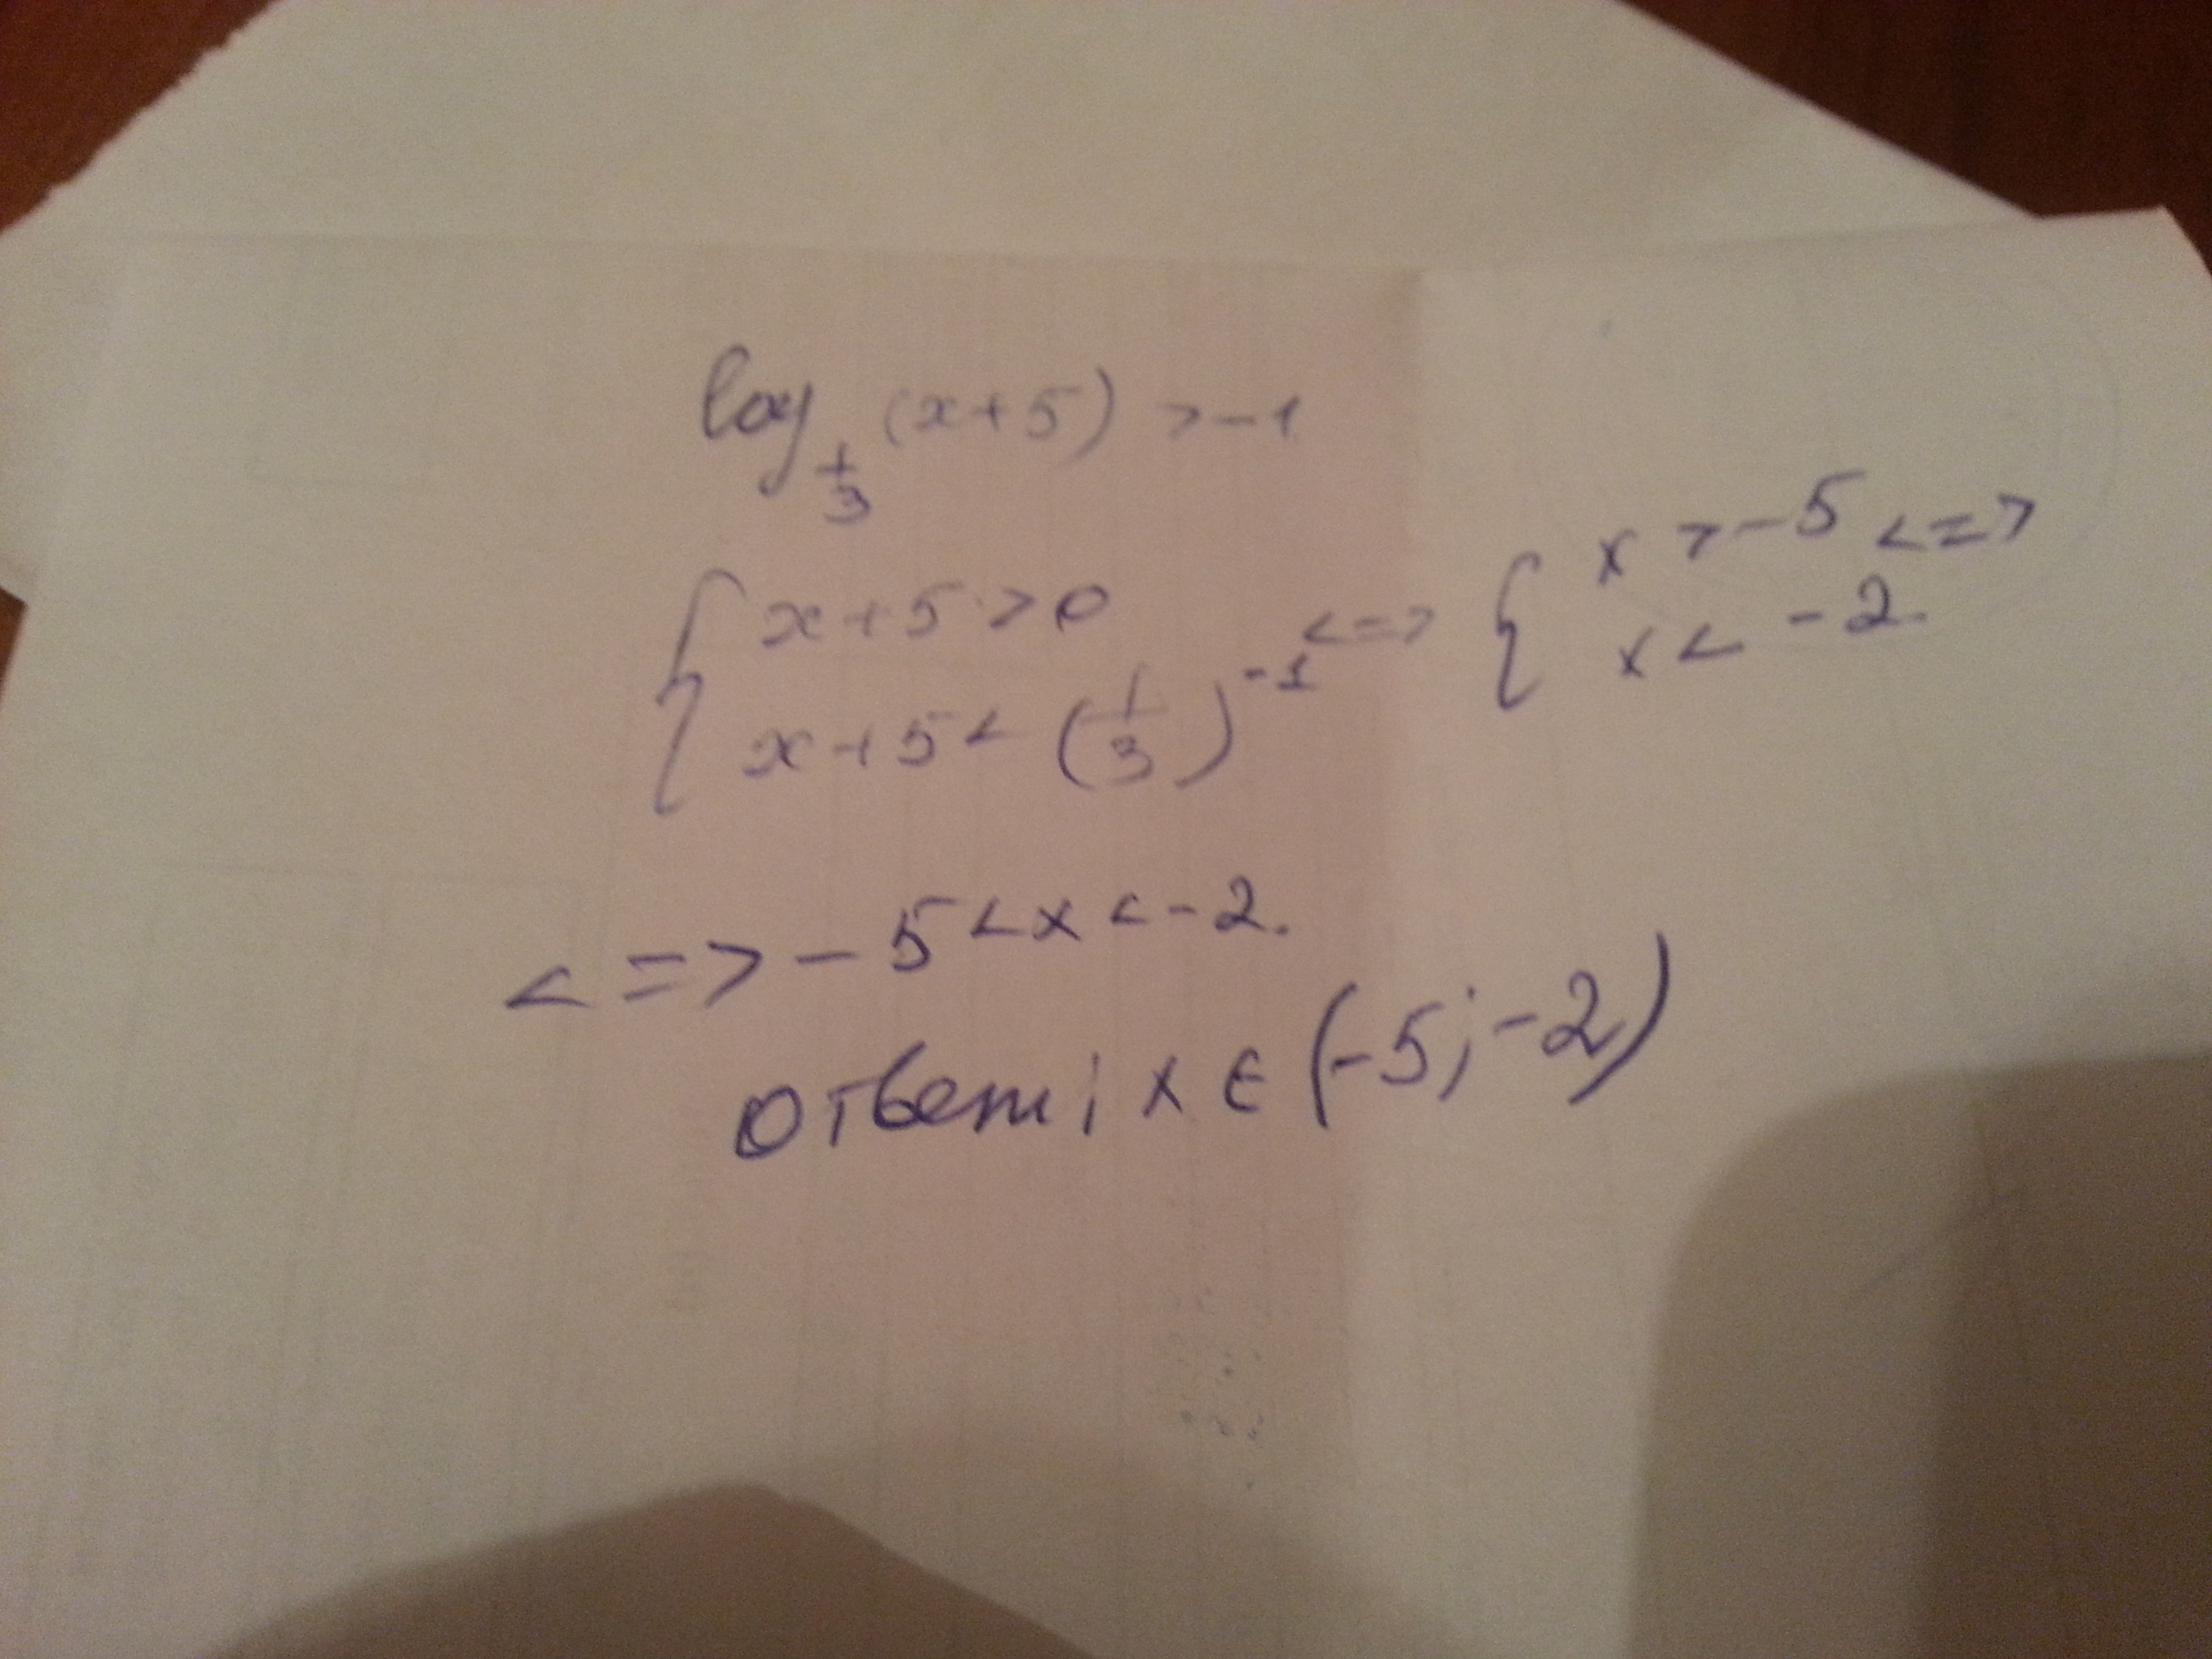 log 1/3 (x+5) > -1
{ x+5 > 0
x+5 < (1/3)^-1 <=> { x > -5 <=>
x < -2.
<=> -5 < x < -2.
Ответ: x ∈ (-5; -2)